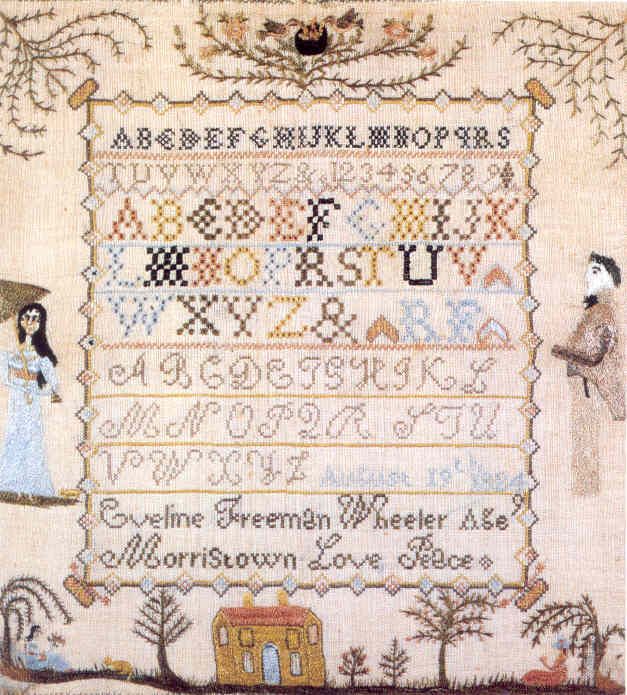 ABCDEFGHIJKLMNOPqRS
TUVWXYZ& 123456789
ABCDEFGHIJK
LMNOPRSTUV
WXYZ& RF
ABCDEFGHIKL
MNOPQR STU
VWXYZ August 19th
Eveline Freeman Wheeler Age 9
Morristown Love Peace